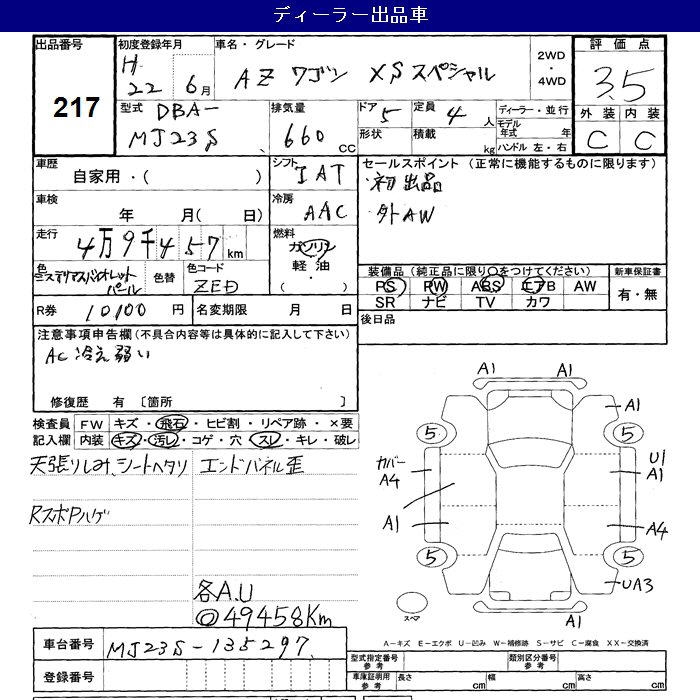 ディーラー出品車
出品番号 217
初度登録年月 H 22 6月
車名・グレード AZワゴン XSスペシャル
2WD・4WD
評価点 3.5
外装 C 内装 C
型式 DBA-MJ23S
排気量 660 CC
ドア 5 定員 4 人
形状 積載 kg
ディーラー・並行
モデル年式 年
ハンドル 左・右
車歴 自家用・( )
シフト IAT
セールスポイント (正常に機能するものに限ります)
・初出品
・外AW
車検 年 月( 日)
冷房 AAC
走行 4万9千457 km
燃料 ガソリン 軽油・( )
色 ミステリアスバイオレットパール 色替 色コード ZED
装備品(純正品に限り○をつけてください) 新車保証書
PS PW ABS エアB AW 有・無
SR ナビ TV カワ
R券 10100円 名変期限 月 日
後日品
注意事項申告欄(不具合内容等は具体的に記入して下さい)
AC冷え弱い
修復歴 有 〔箇所 〕
検査員 FW キズ・飛石・ヒビ割・リペア跡・×要
記入欄 内装 キズ・汚レ・コゲ・穴・スレ・キレ・破レ
天張りしみ、シートヘタリ エンドパネル歪
RスポPハゲ
各A.U
◎49458Km
A1
A1
5 5
カバー A4
U1 A1
A1
A4
5 5
UA3
A1
スペア
A-キズ E-エクボ U-凹み W-補修跡 S-サビ C-腐食 XX-交換済
車台番号 MJ23S-135297
登録番号
型式指定番号 参考 類別区分番号 参考
車庫証明用 参考 長さ cm 幅 cm 高さ cm